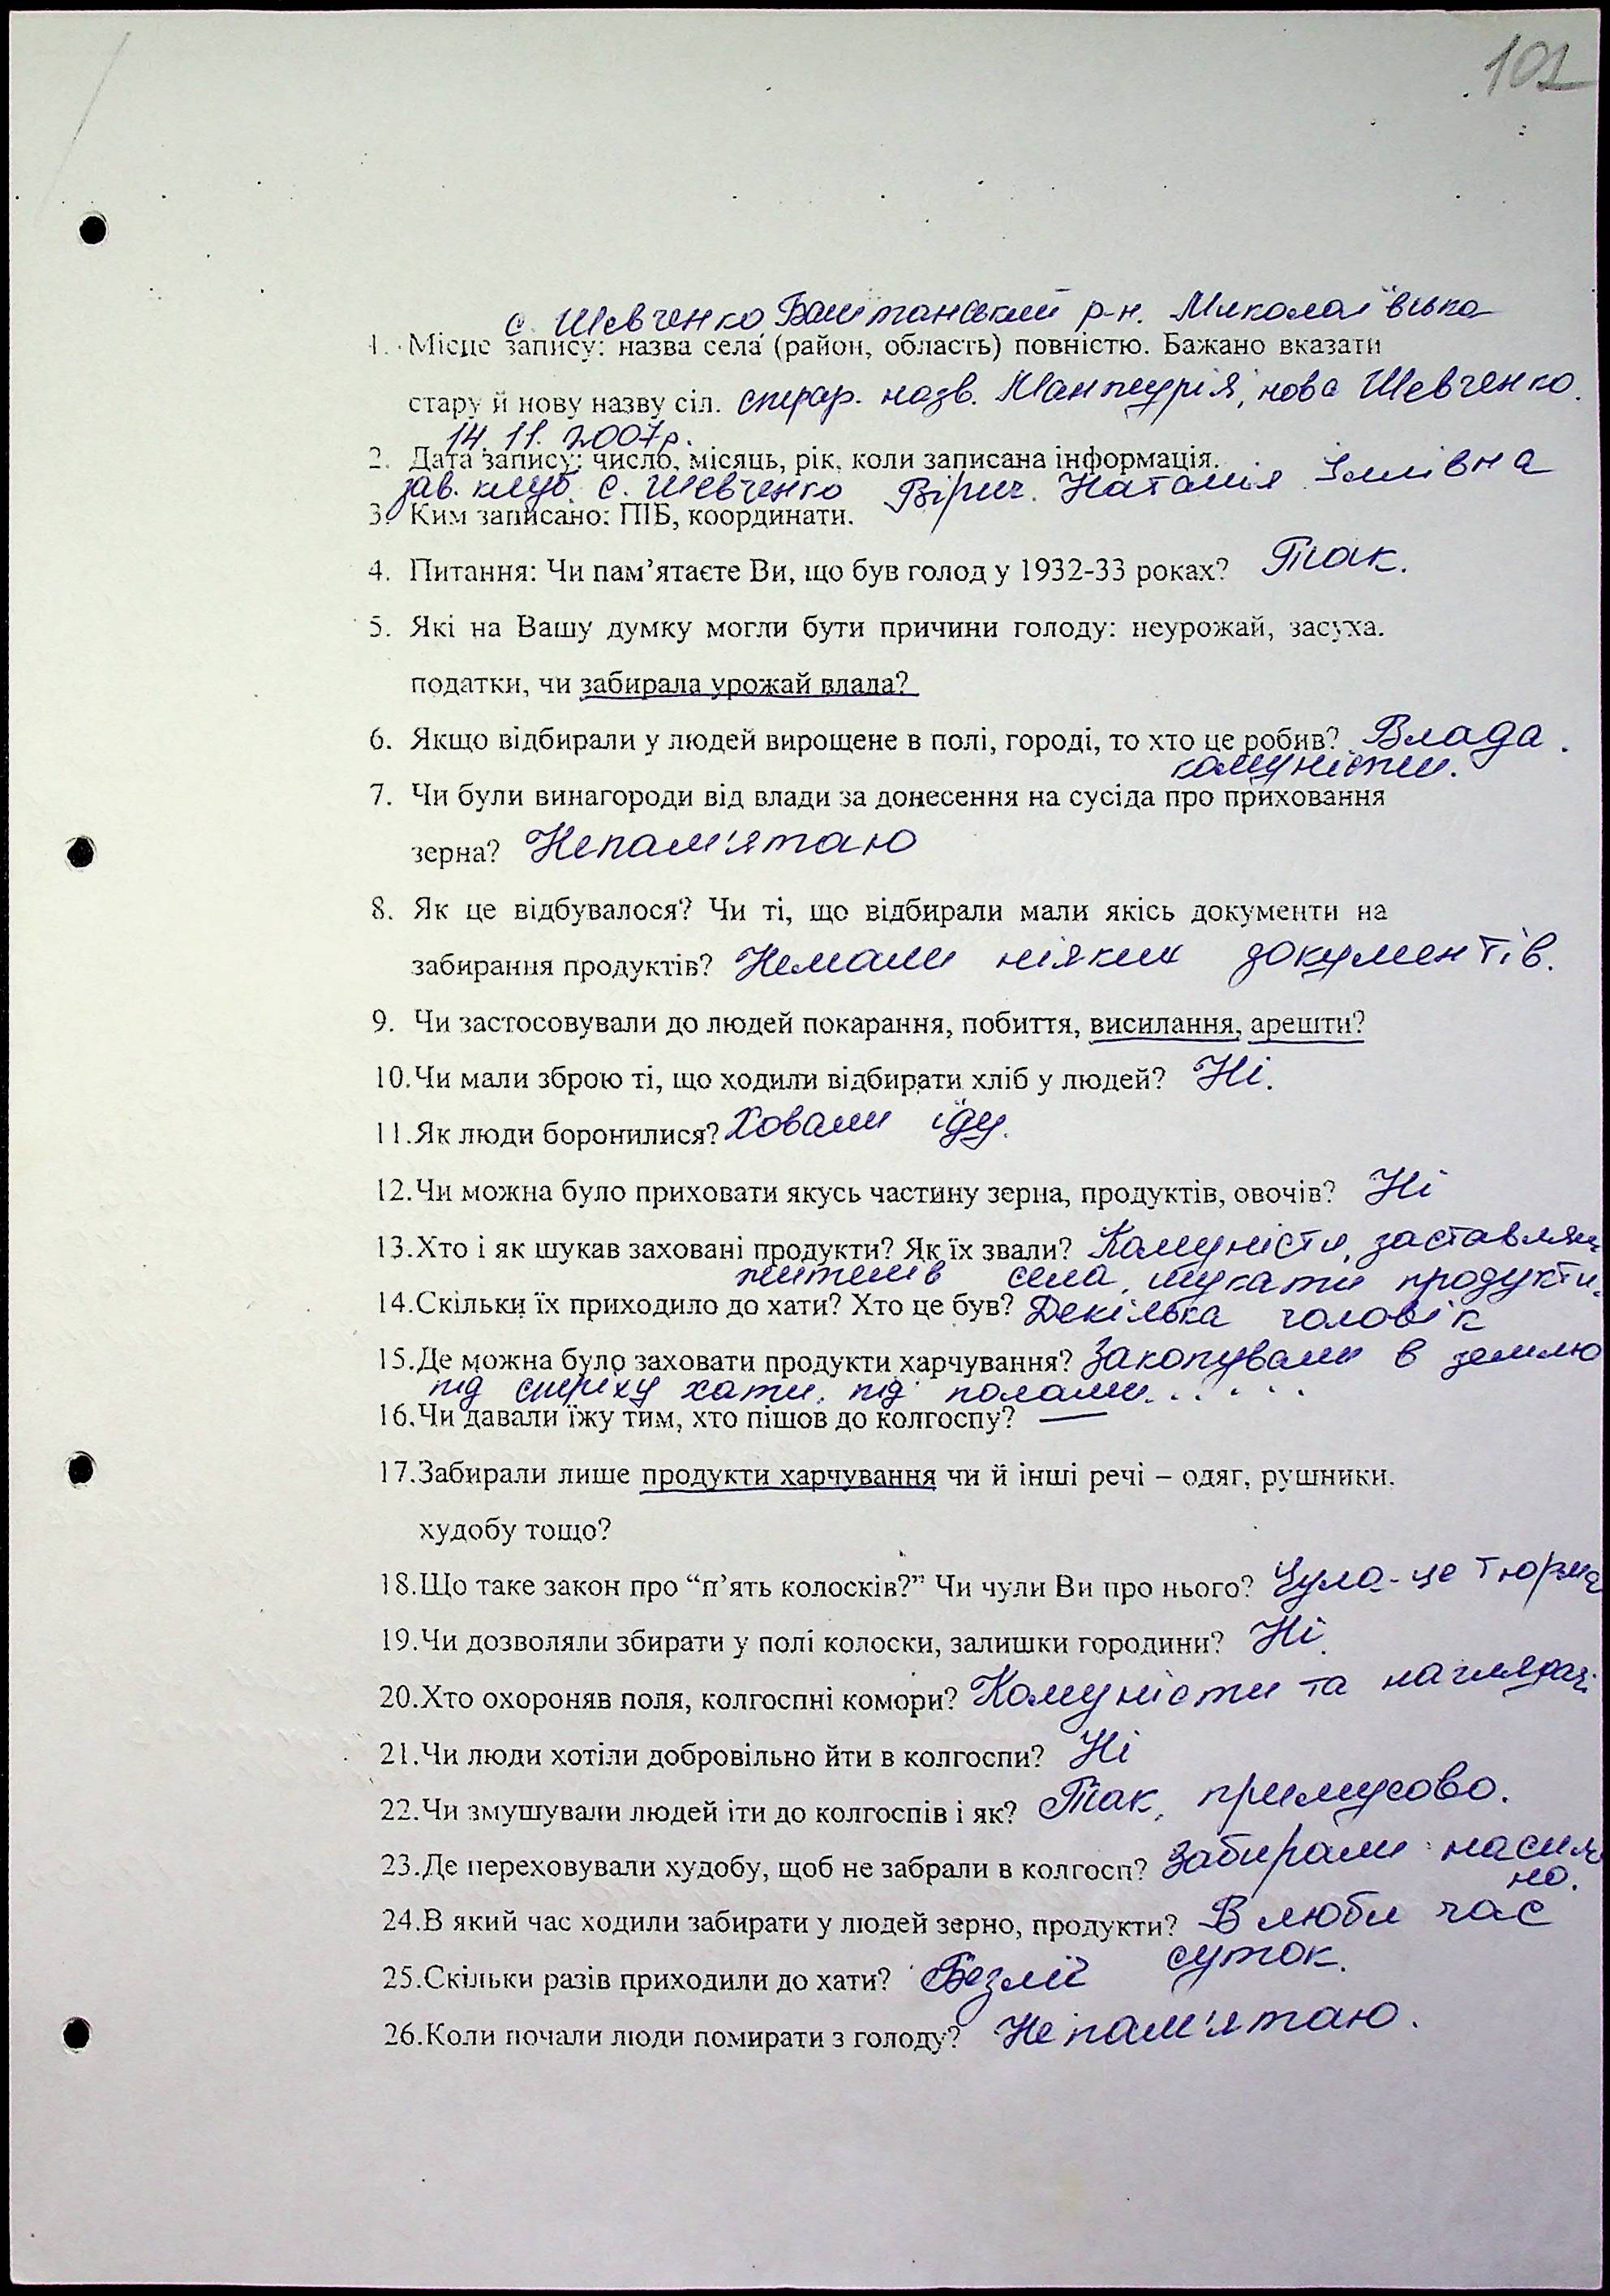 101
с. Шевченко Баштанський р-н. Миколаївська
1. Місце запису: назва села (район, область) повністю. Бажано вказати
стару й нову назву сіл. стар. назв. Манжурія, нова Шевченко.
14. 11. 2007р.
2. Дата запису: число, місяць, рік, коли записана інформація.
зав. клуб. с. Шевченко Вірич. Наталія Іллівна
3. Ким записано: ПІБ, координати.
4. Питання: Чи пам’ятаєте Ви, що був голод у 1932-33 роках? Так.
5. Які на Вашу думку могли бути причини голоду: неурожай, засуха.
податки, чи забирала урожай влада?
6. Якщо відбирали у людей вирощене в полі, городі, то хто це робив? Влада.
комуністи.
7. Чи були винагороди від влади за донесення на сусіда про приховання
зерна? Непам'ятаю
8. Як це відбувалося? Чи ті, що відбирали мали якісь документи на
забирання продуктів? Немали ніяких документів.
9. Чи застосовували до людей покарання, побиття, висилання, арешти?
10.Чи мали зброю ті, що ходили відбирати хліб у людей? Ні.
11.Як люди боронилися? Ховали їду.
12.Чи можна було приховати якусь частину зерна, продуктів, овочів? Ні
13.Хто і як шукав заховані продукти? Як їх звали? Комуністи, заставляли
жителів села, шукати продукти.
14.Скільки їх приходило до хати? Хто це був? Декілька чоловік
15.Де можна було заховати продукти харчування? Закопували в землю
під стріху хати, під полами.....
16.Чи давали їжу тим, хто пішов до колгоспу? —
17.Забирали лише продукти харчування чи й інші речі – одяг, рушники.
худобу тощо?
18.Що таке закон про “п’ять колосків?” Чи чули Ви про нього? Чула - це тюрма
19.Чи дозволяли збирати у полі колоски, залишки городини? Ні.
20.Хто охороняв поля, колгоспні комори? Комуністи та наглядачі
21.Чи люди хотіли добровільно йти в колгоспи? Ні
22.Чи змушували людей іти до колгоспів і як? Так, примусово.
23.Де переховували худобу, щоб не забрали в колгосп? Забирали насиль
но.
24.В який час ходили забирати у людей зерно, продукти? В люби час
суток.
25.Скільки разів приходили до хати? Безліч
26.Коли почали люди помирати з голоду? Не пам'ятаю.